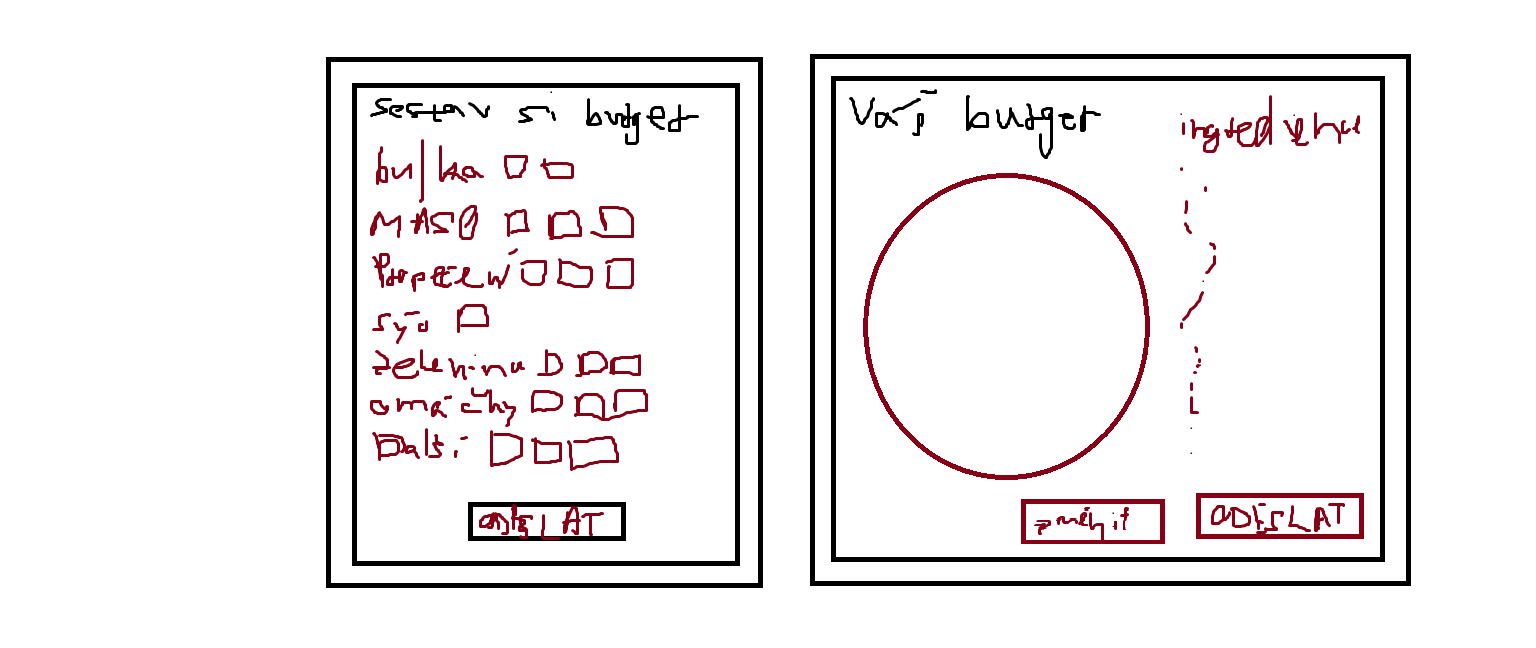 sestav si burger
bulka
MASO
Pečivo
sýr
zelenina
omáčky
Další
ODESLAT
Váš burger
ingredience
změnit
ODESLAT